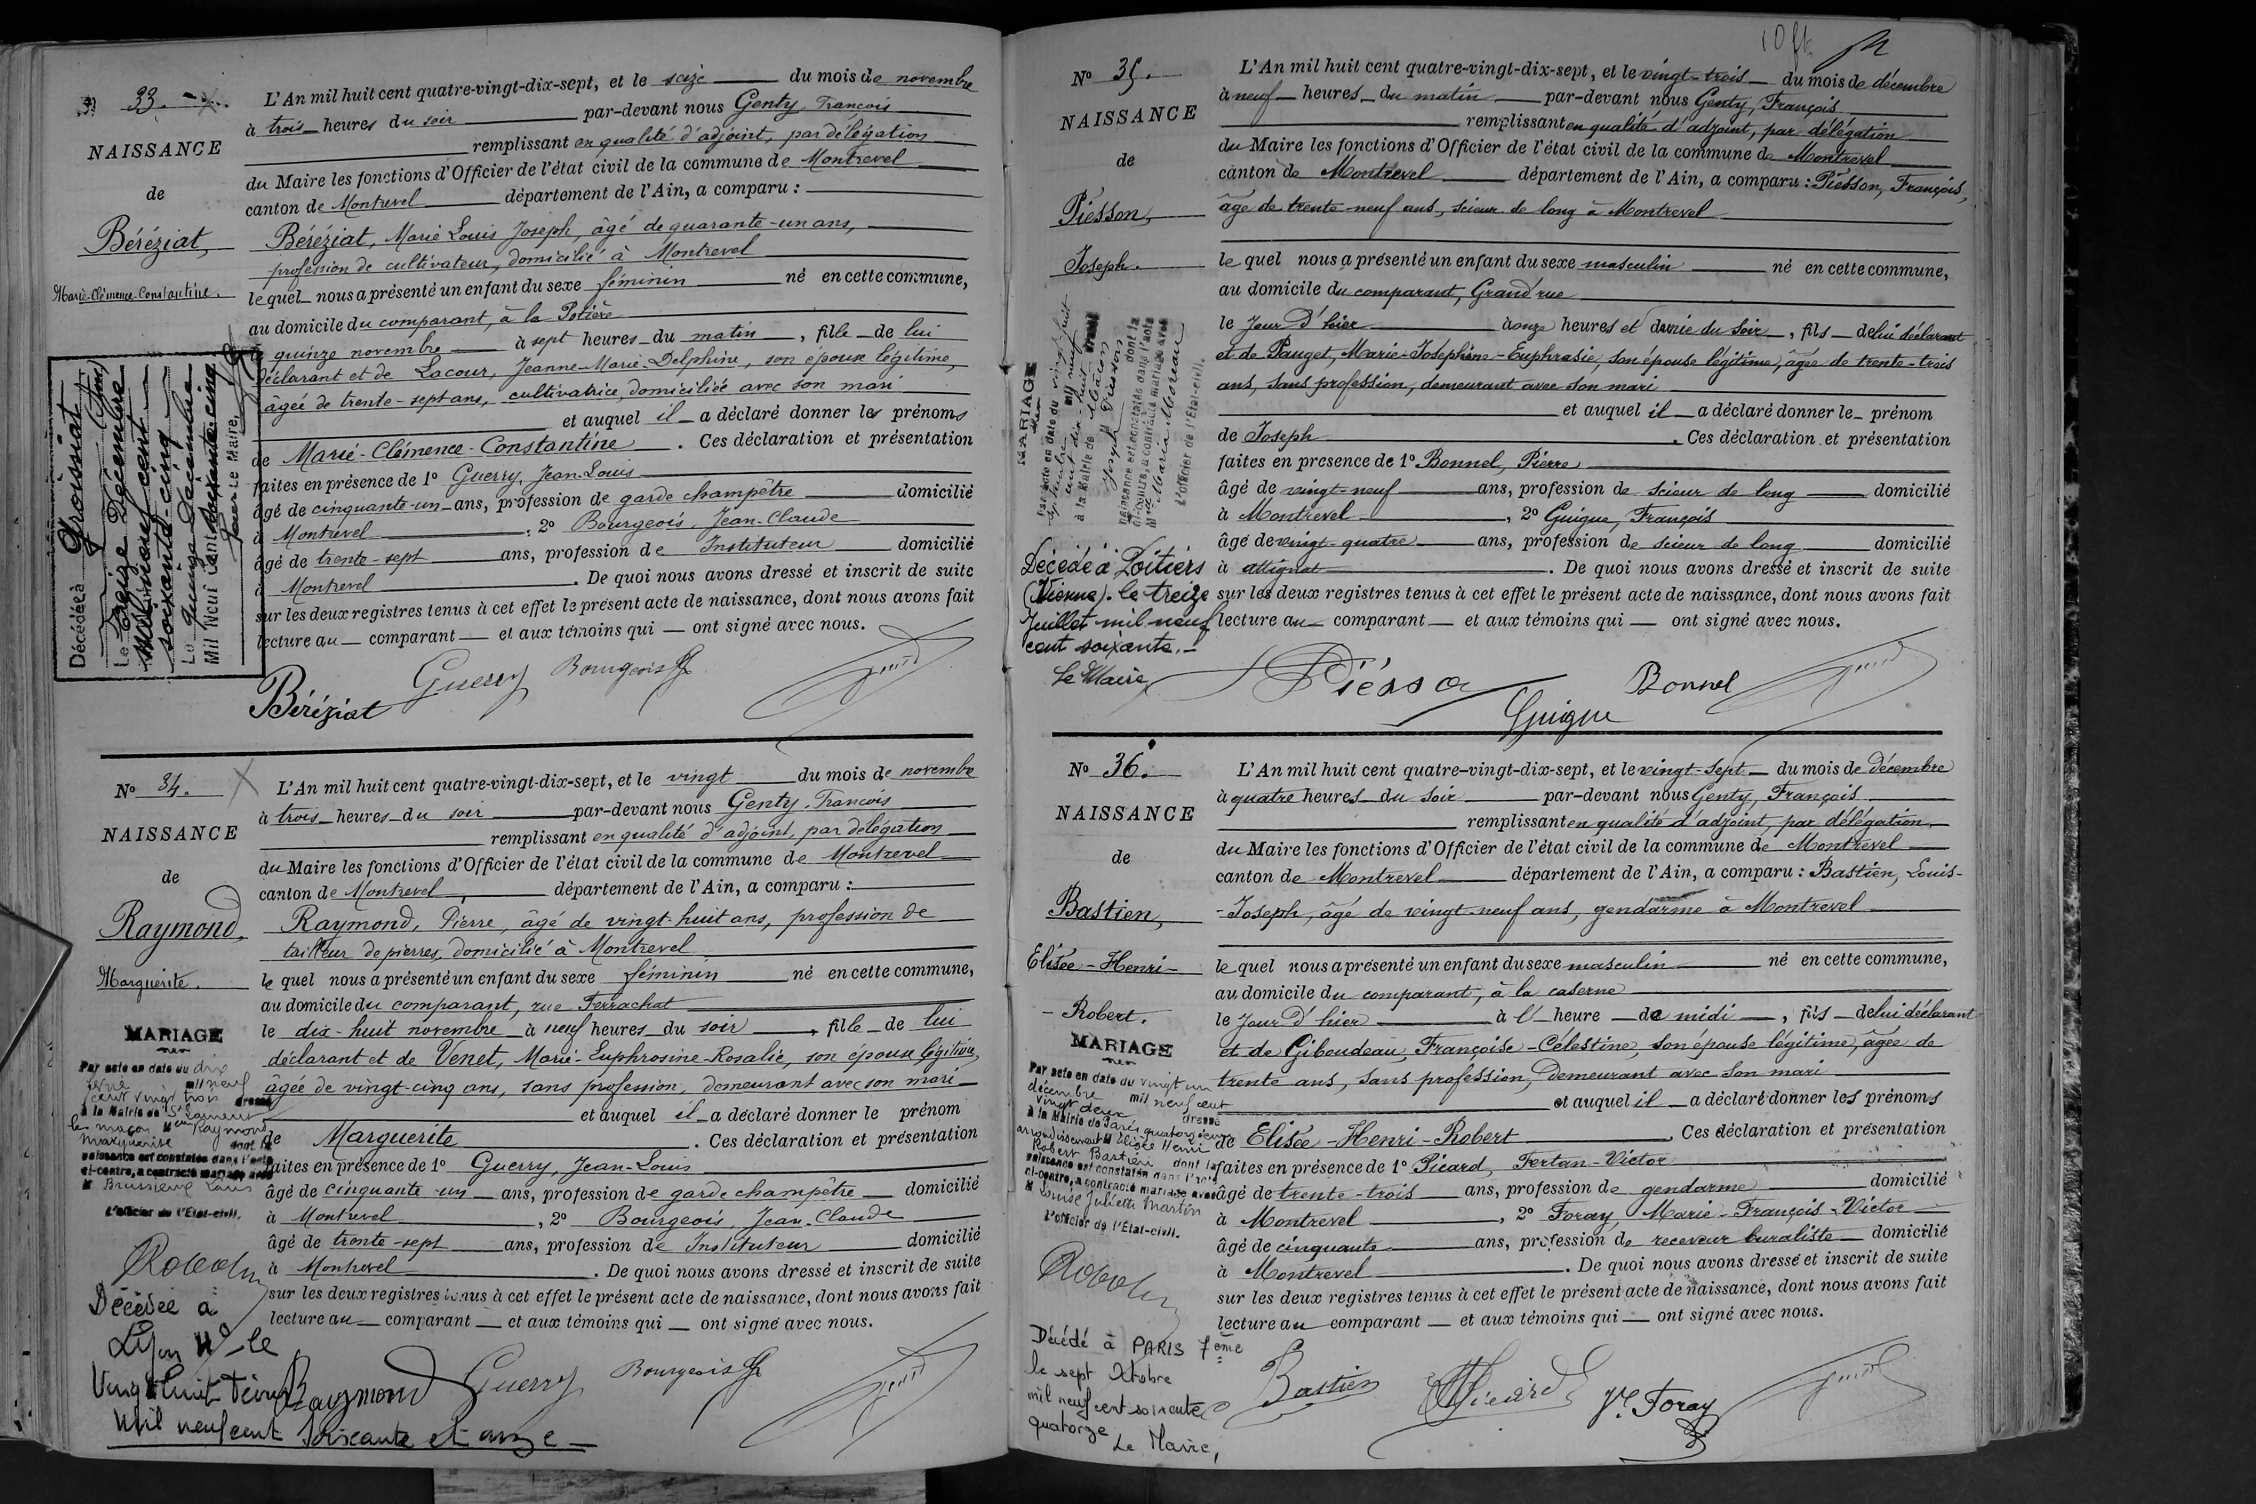 33.
NAISSANCE
de
Béréziat,
Marie-Clémence-Constantine.
L'An mil huit cent quatre-vingt-dix-sept, et le seize du mois de novembre
à trois heures du soir par-devant nous Genty, François
remplissant en qualité d'adjoint, par délégation
du Maire les fonctions d'Officier de l'état civil de la commune de Montrevel
canton de Montrevel département de l'Ain, a comparu :
Béréziat, Marie Louis Joseph, âgé de quarante-un ans,
profession de cultivateur, domicilié à Montrevel
lequel nous a présenté un enfant du sexe féminin né en cette commune,
au domicile du comparant, à la Potière
le quinze novembre à sept heures du matin, fille de lui
déclarant et de Lacour, Jeanne-Marie-Delphine, son épouse légitime,
âgée de trente-sept ans, cultivatrice, domiciliée avec son mari
et auquel il a déclaré donner les prénoms
de Marie-Clémence-Constantine. Ces déclaration et présentation
faites en présence de 1º Guerry, Jean-Louis
âgé de cinquante-un ans, profession de garde champêtre domicilié
à Montrevel, 2º Bourgeois, Jean-Claude
âgé de trente-sept ans, profession de Instituteur domicilié
à Montrevel. De quoi nous avons dressé et inscrit de suite
sur les deux registres tenus à cet effet le présent acte de naissance, dont nous avons fait
lecture au comparant et aux témoins qui ont signé avec nous.
Béréziat Guerry Bourgeois
Décédée à Groissiat
(Ain)
Le treize Décembre
Mil neuf cent
soixante-cinq
Le quinze Décembre
Mil Neuf Cent soixante cinq
Pour Le Maire,
Nº 34.
NAISSANCE
de
Raymond,
Marguerite.
L'An mil huit cent quatre-vingt-dix-sept, et le vingt du mois de novembre
à trois heures du soir par-devant nous Genty, François
remplissant en qualité d'adjoint, par délégation
du Maire les fonctions d'Officier de l'état civil de la commune de Montrevel
canton de Montrevel, département de l'Ain, a comparu :
Raymond, Pierre, âgé de vingt-huit ans, profession de
tailleur de pierres, domicilié à Montrevel
le quel nous a présenté un enfant du sexe féminin né en cette commune,
au domicile du comparant, rue Ferrachat
le dix-huit novembre à neuf heures du soir, fille de lui
déclarant et de Venet, Marie-Euphrosine-Rosalie, son épouse légitime,
âgée de vingt-cinq ans, sans profession, demeurant avec son mari
et auquel il a déclaré donner le prénom
de Marguerite. Ces déclaration et présentation
faites en présence de 1º Guerry, Jean-Louis
âgé de cinquante-un ans, profession de garde champêtre domicilié
à Montrevel, 2º Bourgeois, Jean-Claude
âgé de trente-sept ans, profession de Instituteur domicilié
à Montrevel. De quoi nous avons dressé et inscrit de suite
sur les deux registres tenus à cet effet le présent acte de naissance, dont nous avons fait
lecture au comparant et aux témoins qui ont signé avec nous.
Raymond Guerry Bourgeois
MARIAGE
Par acte en date du dix
mil neuf
cent vingt trois dressé
à la Mairie de St Laurent
les macon Melle Raymond
Marguerite dont la
naissance est constatée dans l'acte
ci-contre, a contracté mariage avec
M
Louis
L'officier de l'Etat-civil.
Décédée à
Lyon 4e le
Vingt huit
Mil neuf cent soixante et onze
Nº 35.
NAISSANCE
de
Piésson,
Joseph.
L'An mil huit cent quatre-vingt-dix-sept, et le vingt-trois du mois de décembre
à neuf heures du matin par-devant nous Genty, François
remplissant en qualité d'adjoint, par délégation
du Maire les fonctions d'Officier de l'état civil de la commune de Montrevel
canton de Montrevel département de l'Ain, a comparu : Piésson, François,
âgé de trente-neuf ans, scieur de long à Montrevel
le quel nous a présenté un enfant du sexe masculin né en cette commune,
au domicile du comparant, Grand'rue
le Jour d'hier à onze heures et demie du soir, fils de lui déclarant
et de Pauget, Marie-Joséphine-Euphrasie, son épouse légitime, âgée de trente-trois
ans, sans profession, demeurant avec son mari
et auquel il a déclaré donner le prénom
de Joseph. Ces déclaration et présentation
faites en présence de 1º Bonnel, Pierre
âgé de vingt-neuf ans, profession de scieur de long domicilié
à Montrevel, 2º Guigue, François
âgé de vingt-quatre ans, profession de scieur de long domicilié
à attignat. De quoi nous avons dressé et inscrit de suite
sur les deux registres tenus à cet effet le présent acte de naissance, dont nous avons fait
lecture au comparant et aux témoins qui ont signé avec nous.
Bonnel
Guigue
MARIAGE
Par acte en date du vingt huit
mil neuf
cent dix-huit dressé
à la Mairie de Mâcon
M Joseph
dont la
naissance est constatée dans l'acte
ci-contre, a contracté mariage avec
M Maria Moreau
L'officier de l'Etat-civil.
Décédé à Poitiers
(Vienne). le treize
Juillet mil neuf
cent soixante.
Le Maire,
Nº 36.
NAISSANCE
de
Bastien,
Elisée-Henri-
-Robert.
L'An mil huit cent quatre-vingt-dix-sept, et le vingt-sept du mois de décembre
à quatre heures du soir par-devant nous Genty, François
remplissant en qualité d'adjoint, par délégation
du Maire les fonctions d'Officier de l'état civil de la commune de Montrevel
canton de Montrevel département de l'Ain, a comparu : Bastien, Louis-
-Joseph, âgé de vingt-neuf ans, gendarme à Montrevel
le quel nous a présenté un enfant du sexe masculin né en cette commune,
au domicile du comparant, à la caserne
le Jour d'hier à l'heure de midi, fils de lui déclarant
et de Giboudeau, Françoise-Célestine, son épouse légitime, âgée de
trente ans, sans profession, demeurant avec son mari
et auquel il a déclaré donner les prénoms
de Elisée-Henri-Robert. Ces déclaration et présentation
faites en présence de 1º Picard, Fertan-Victor
âgé de trente-trois ans, profession de gendarme domicilié
à Montrevel, 2º Foray, Marie-François-Victor
âgé de cinquante ans, profession de receveur buraliste domicilié
à Montrevel. De quoi nous avons dressé et inscrit de suite
sur les deux registres tenus à cet effet le présent acte de naissance, dont nous avons fait
lecture au comparant et aux témoins qui ont signé avec nous.
Bastien Picard Vr Foray
MARIAGE
Par acte en date du vingt un
décembre mil neuf cent
vingt deux dressé
à la Mairie de Paris quatorzième
arrondissement M Elisée Henri
Robert Bastien dont la
naissance est constatée dans l'acte
ci-contre, a contracté mariage avec
M Louise Juliette Martin
L'officier de l'Etat-civil.
Décédé à PARIS 7ème
le sept Octobre
mil neuf cent soixante
quatorze
Le Maire,